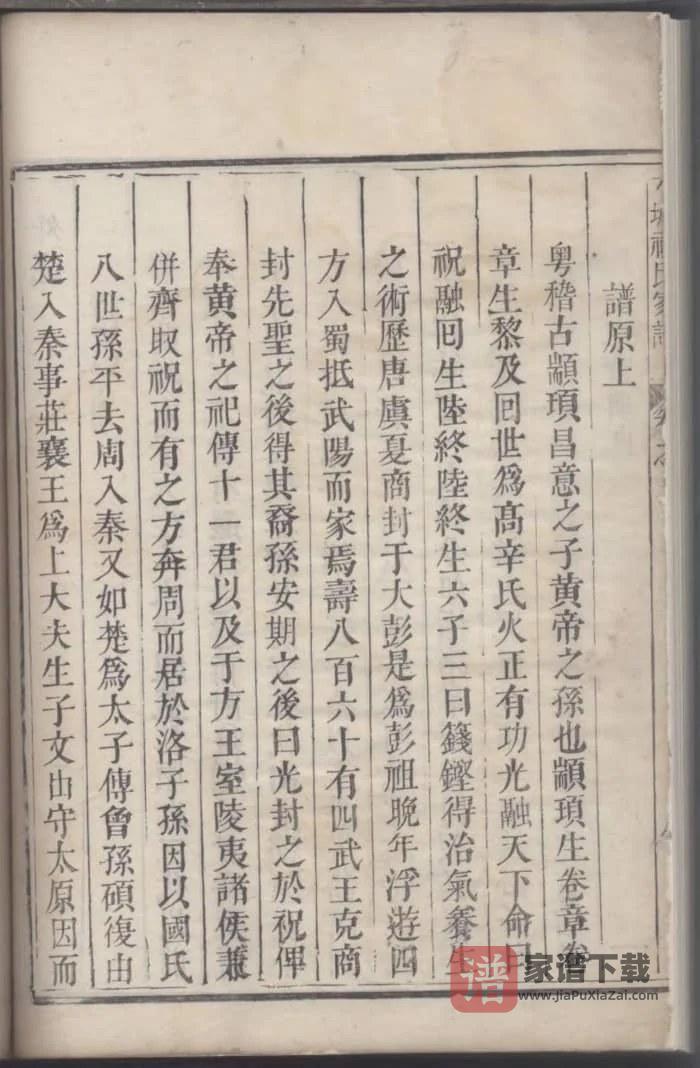 譜原上
粤稽古顓頊昌意之子黄帝之孫也顓頊生卷章卷
章生黎及回世爲髙辛氏火正有功光融天下命曰
祝融回生陸終陸終生六子三曰籛鏗得治氣養生
之術歷唐虞夏商封于大彭是爲彭祖晚年浮遊四
方入蜀抵武陽而家焉壽八百六十有四武王克商
封先聖之後得其裔孫安期之後曰光封之於祝俾
奉黄帝之祀傳十一君以及于方王室陵夷諸侯兼
併齊取祝而有之方奔周而居於洛子孫因以國氏
八世孫平去周入秦又如楚爲太子傅曾孫碩復由
楚入秦事莊襄王爲上大夫生子文由守太原因而
家谱下载
www.jiaPuXiaZai.com
谱